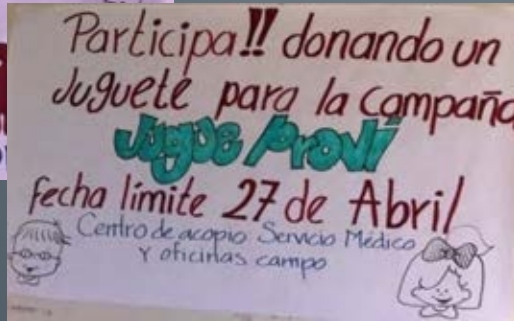 Participa!! donando un
Juguete para la Campaña
Jugue Provi
fecha límite 27 de Abril
Centro de acopio Servicio Médico
Y oficinas campo